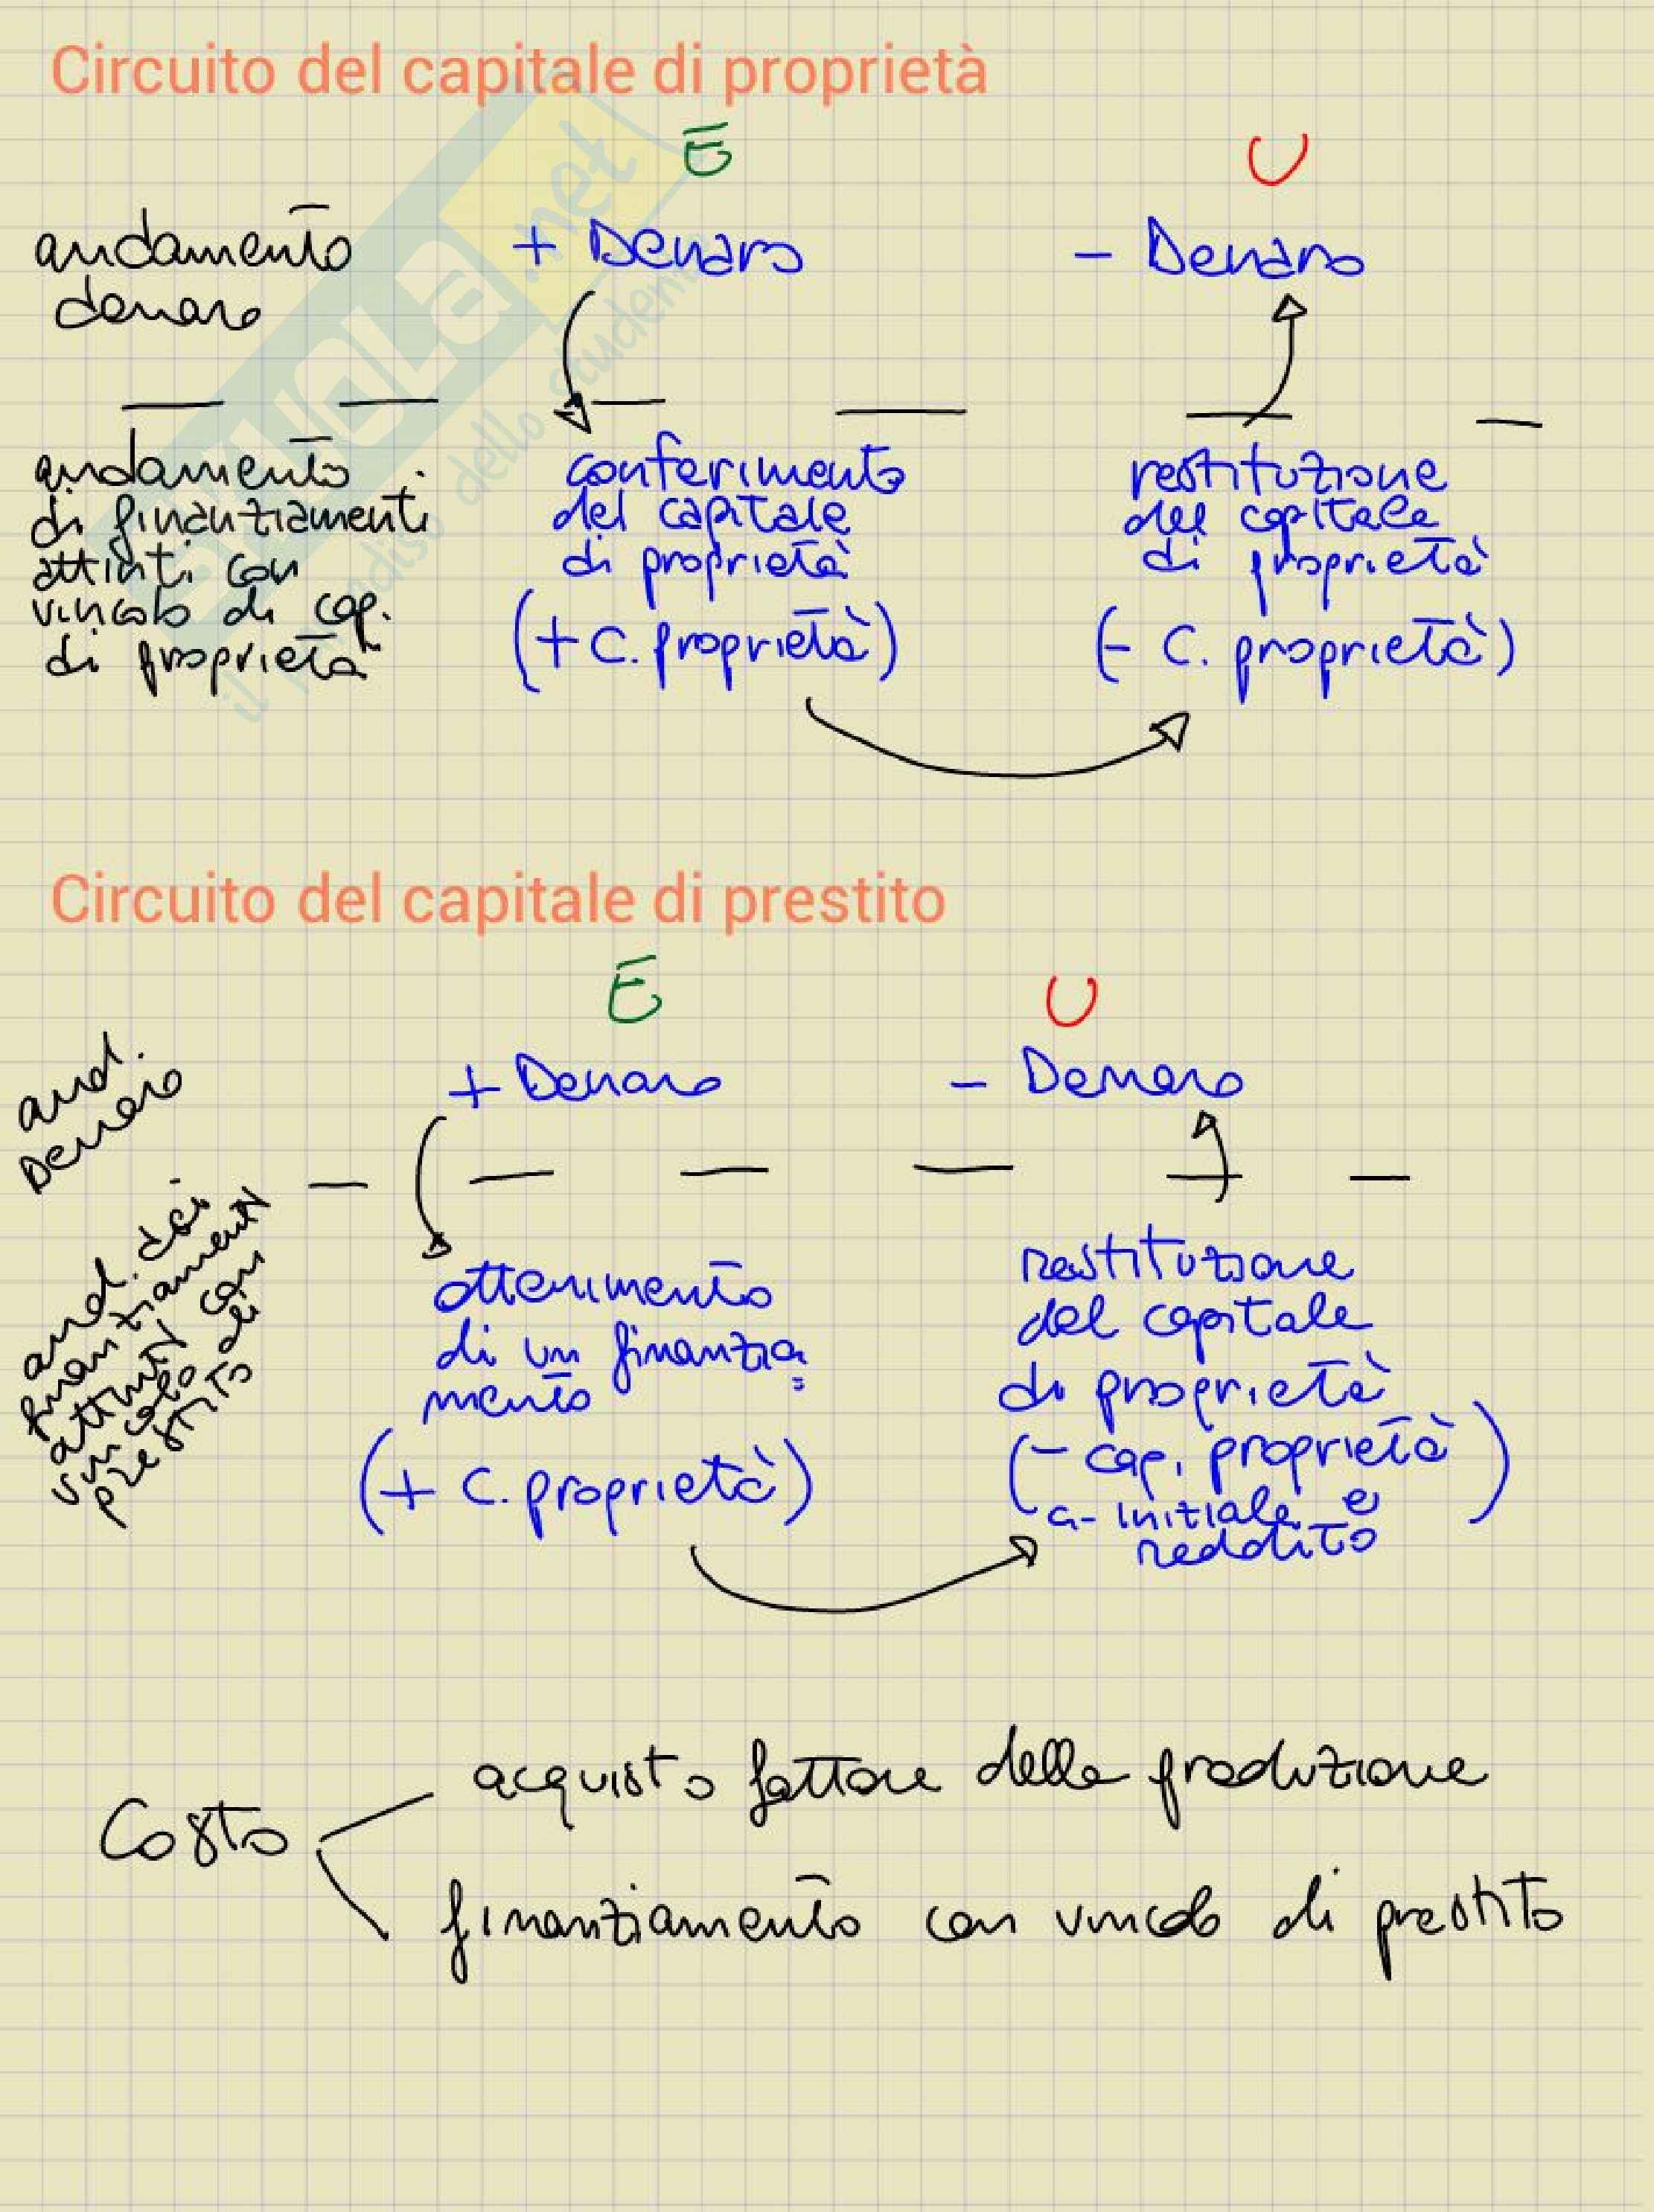 Circuito del capitale di proprietà
E U
andamento + Denaro - Denaro
denaro
andamento conferimento restituzione
di finanziamenti del capitale del capitale
attinti con di proprietà di proprietà
vincolo di cap. (+ C. proprietà) (- C. proprietà)
di proprietà
SKUOLA.net
il paradiso dello studente
Circuito del capitale di prestito
E U
and. + Denaro - Denaro
Denaro
and. dei
finanziamenti
attinti con
vincolo di
prestito
ottenimento
di un finanzia
mento
(+ C. proprietà)
restituzione
del capitale
di proprietà
(- cap. proprietà)
initiale e
reddito
Costo
acquisto fattore della produzione
finanziamento con vincolo di prestito